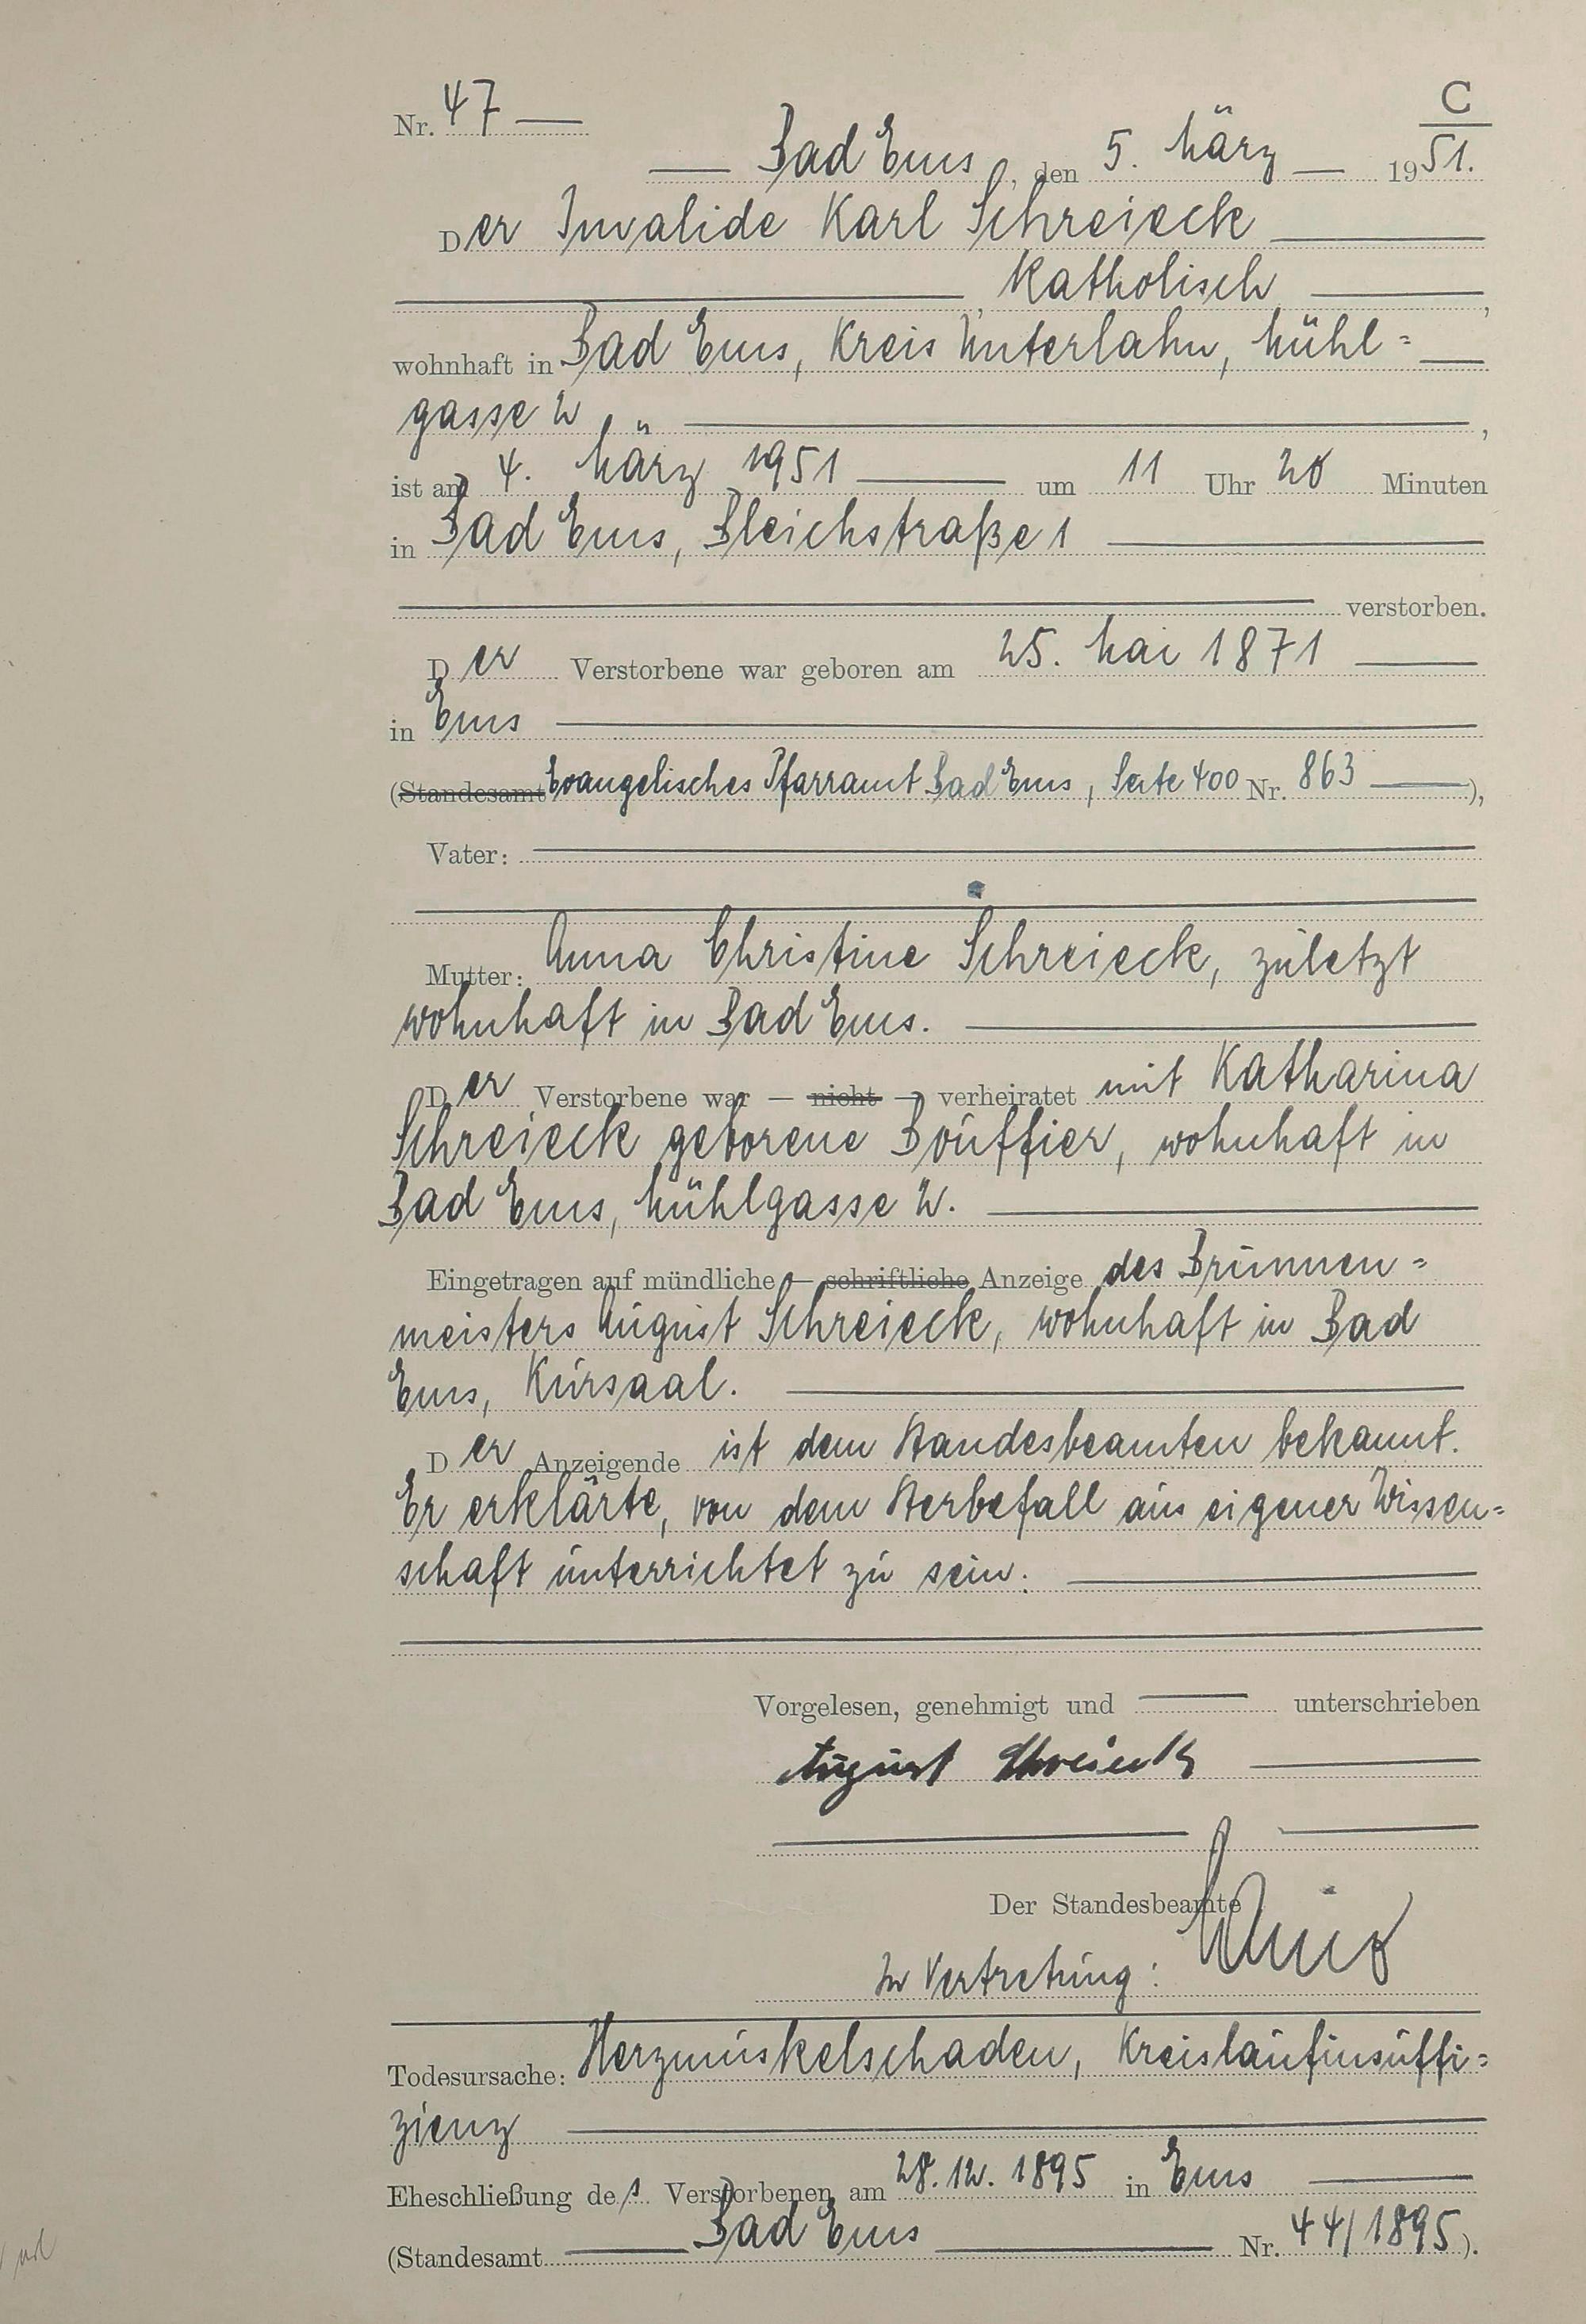 Nr. 47 —
C
Bad Ems, den 5. März 1951.
Der Invalide Karl Schreieck
Katholisch,
wohnhaft in Bad Ems, Kreis Unterlahn, Mühl=
gasse 2 ,
ist am 4. März 1951 um 11 Uhr 20 Minuten
in Bad Ems, Bleichstraße 1
verstorben.
Der Verstorbene war geboren am 25. Mai 1871
in Ems
(Standesamt Evangelisches Pfarramt Bad Ems, Seite 400 Nr. 863 ),
Vater:
Mutter: Anna Christine Schreieck, zuletzt
wohnhaft in Bad Ems.
Der Verstorbene war — nicht — verheiratet mit Katharina
Schreieck geborene Bouffier, wohnhaft in
Bad Ems, Mühlgasse 2.
Eingetragen auf mündliche — schriftliche Anzeige des Brunnen=
meisters August Schreieck, wohnhaft in Bad
Ems, Kursaal.
Der Anzeigende ist dem Standesbeamten bekannt.
Er erklärte, von dem Sterbefall aus eigener Wissen=
schaft unterrichtet zu sein.
Vorgelesen, genehmigt und unterschrieben
August Schreieck
Der Standesbeamte
In Vertretung:
Todesursache: Herzmuskelschaden, Kreislaufinsuffi=
zienz
Eheschließung des Verstorbenen am 28.12.1895 in Ems
(Standesamt Bad Ems Nr. 44/1895).